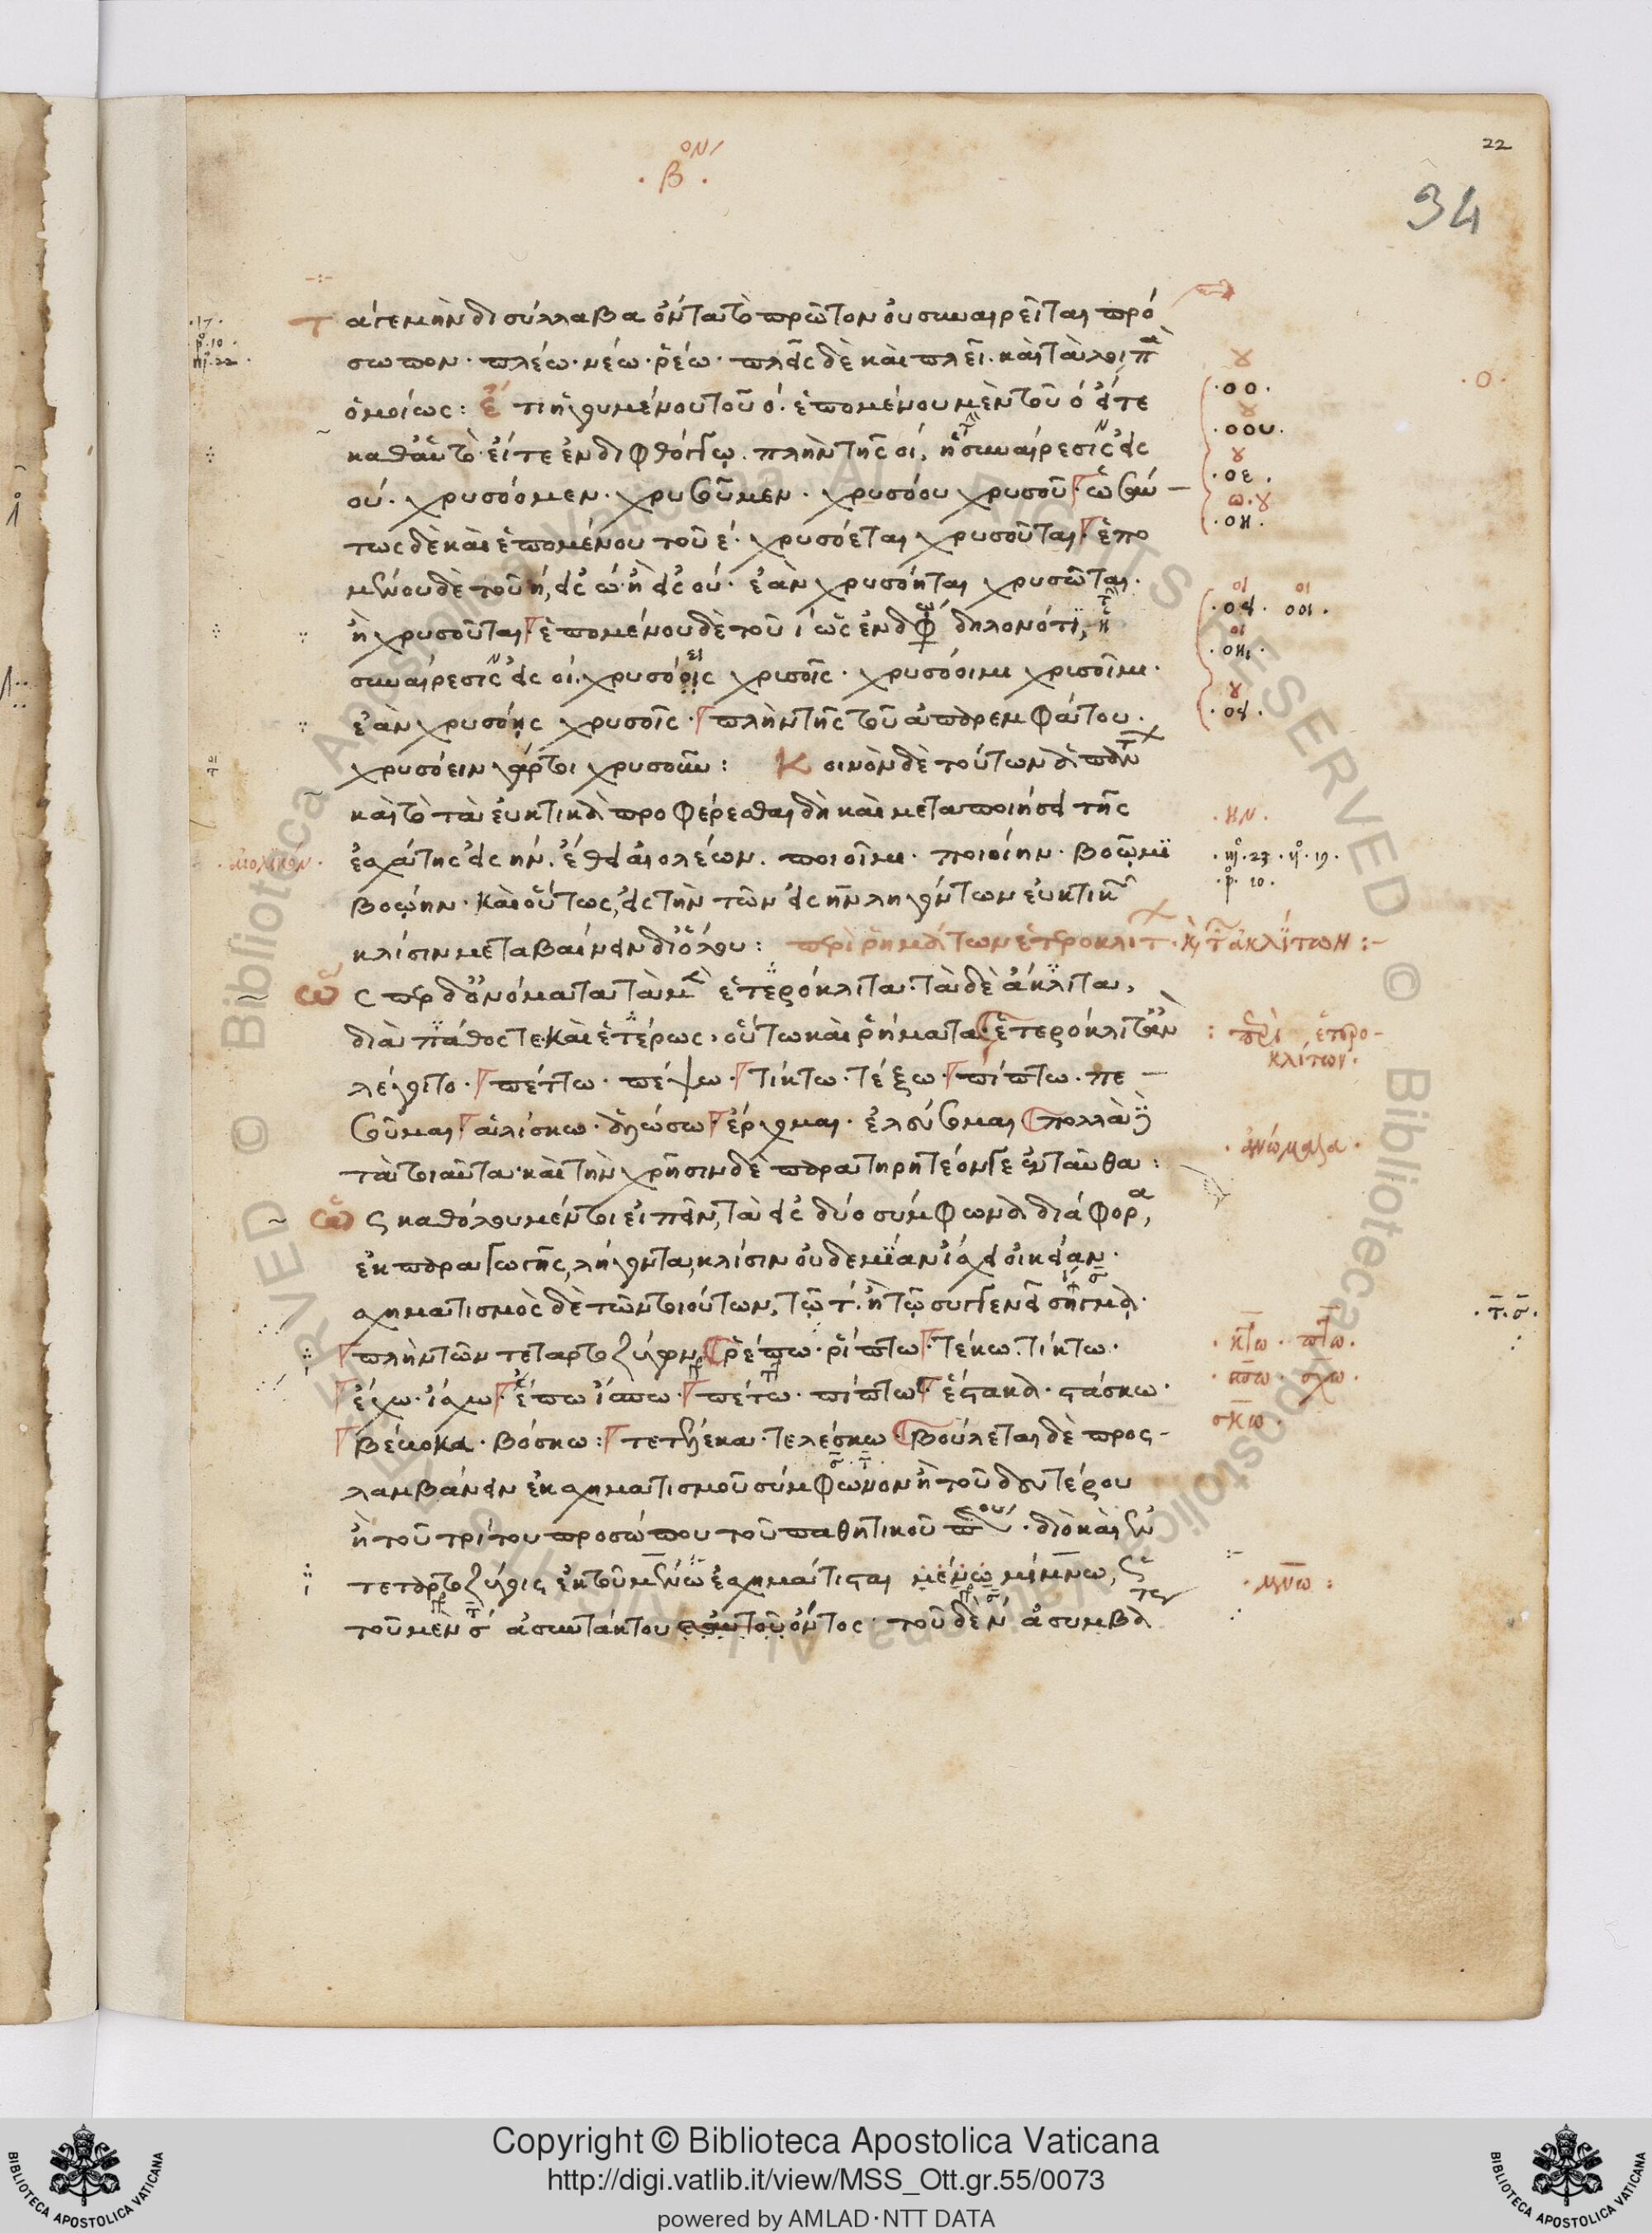 ον
· β ·
22
34
Τά γε μὴν δισύλλαβα ὄντα τὸ πρῶτον οὐ συναιρεῖται πρό
σωπον · πλέω · νέω · ῥέω · πλεῖς δὲ καὶ πλεῖ · καὶ τὰ λοιπὰ
ὁμοίως : ἔτι ἡγουμένου τοῦ ό · ἑπομένου μὲν τοῦ ό εἴτε
καθ' αὑτὸ · εἴτε ἐν διφθόγγῳ · πλὴν τῆς οι, ἡ συναίρεσις εἰς
ού · χρυσόομεν · χρυσοῦμεν · χρυσόου χρυσοῦ · ὡσαύ-
τως δὲ καὶ ἑπομένου τοῦ έ · χρυσόεται χρυσοῦται · ἑπο
μένου δὲ τοῦ ή, εἰς ώ · ἢ εἰς ού · ἐὰν χρυσόηται χρυσῶται ·
ἢ χρυσοῦται · ἑπομένου δὲ τοῦ ι ὡς ἐν δφ δηλονότι, ἡ
συναίρεσις εἰς οι · χρυσόοις χρυσοῖς · χρυσόοιμι χρυσοῖμι ·
ἐὰν χρυσόῃς χρυσοῖς · πλὴν τῆς τοῦ ἀπαρεμφάτου ·
χρυσόειν γάρ τοι χρυσοῦν : Κοινὸν δὲ τούτων
καὶ τὸ τὰ εὐκτικὰ προφέρεσθαι δὴ καὶ μεταποιήσει τῆς
ἐσχάτης εἰς ην · ἔθει αἰολέων · ποιοῖμι · ποιοίην · βοῷμι
βοῴην · καὶ οὕτως, εἰς τὴν τῶν εἰς ην ληγόντων εὐκτικ
κλίσιν μεταβαίνειν διόλου : περὶ ῥημάτων ἑτεροκλίτ · κ τ ἀκλίτων :-
Ὥσπερ δ' ὀνόματα τὰ μὲν ἑτερόκλιτα · τὰ δὲ ἄκλιτα,
διὰ πάθος τε καὶ ἑτέρως · οὕτω καὶ ῥήματα · ἑτερόκλιτα ἂν
λέγοιτο · πέττω · πέψω · τίκτω · τέξω · πίπτω · πε-
σοῦμαι · ἁλίσκω · ἁλώσω · ἔρχομαι · ἐλεύσομαι πολλὰ
τὰ τοιαῦτα · καὶ τὴν χρῆσιν δὲ παρατηρητέον γε ἐνταῦθα :
Ὡς καθόλου μέντοι εἰπεῖν, τὰ εἰς δύο σύμφωνα διάφορα,
ἐκ παραγωγῆς, λήγοντα, κλίσιν οὐδεμίαν ἴσχει οἰκείαν ·
σχηματισμὸς δὲ τῶν τοιούτων, τῷ τ · ἢ τῷ συγγενεῖ σίγμα ·
πλὴν τῶν τεταρτοζύγων ῥέπω · ῥίπτω · τέκω · τίκτω ·
ἔχω · ἴσχω · ἕπω · πέτω · πίπτω · ἕστακα · στάσκω ·
βέβοκα · βόσκω : τετέλεκα · τελέσκω · βούλεται δὲ προς-
λαμβάνειν ἐκ σχηματισμοῦ σύμφωνον ἢ τοῦ δευτέρου
ἢ τοῦ τρίτου προσώπου τοῦ παθητικοῦ · διὸ καὶ ἐν
τεταρτοζύγοις ἐκ τοῦ μένω ἐσχημάτισται μένω μίμνω,
τοῦ μὲν σ ἀσυντάκτου ὄντος · τοῦ δὲ ν ἀσυμβα
· 17 ·
· 10 ·
22 ·
· αἰολικόν ·
· οο ·
· οου ·
· οε ·
ω · ου
· οη ·
οι οι
· οει · οοι ·
οι
· οηι ·
· οει ·
· ην ·
· 23 · 19 ·
10 ·
: περὶ ἑτερο-
κλίτων ·
· ἀνώμαλα ·
· τ · σ ·
· κτω · πτω ·
· πσω · σχω ·
σκω ·
· μνω :
· ο ·
Copyright © Biblioteca Apostolica Vaticana
http://digi.vatlib.it/view/MSS_Ott.gr.55/0073
powered by AMLAD·NTT DATA
BIBLIOTECA APOSTOLICA VATICANA
BIBLIOTECA APOSTOLICA VATICANA